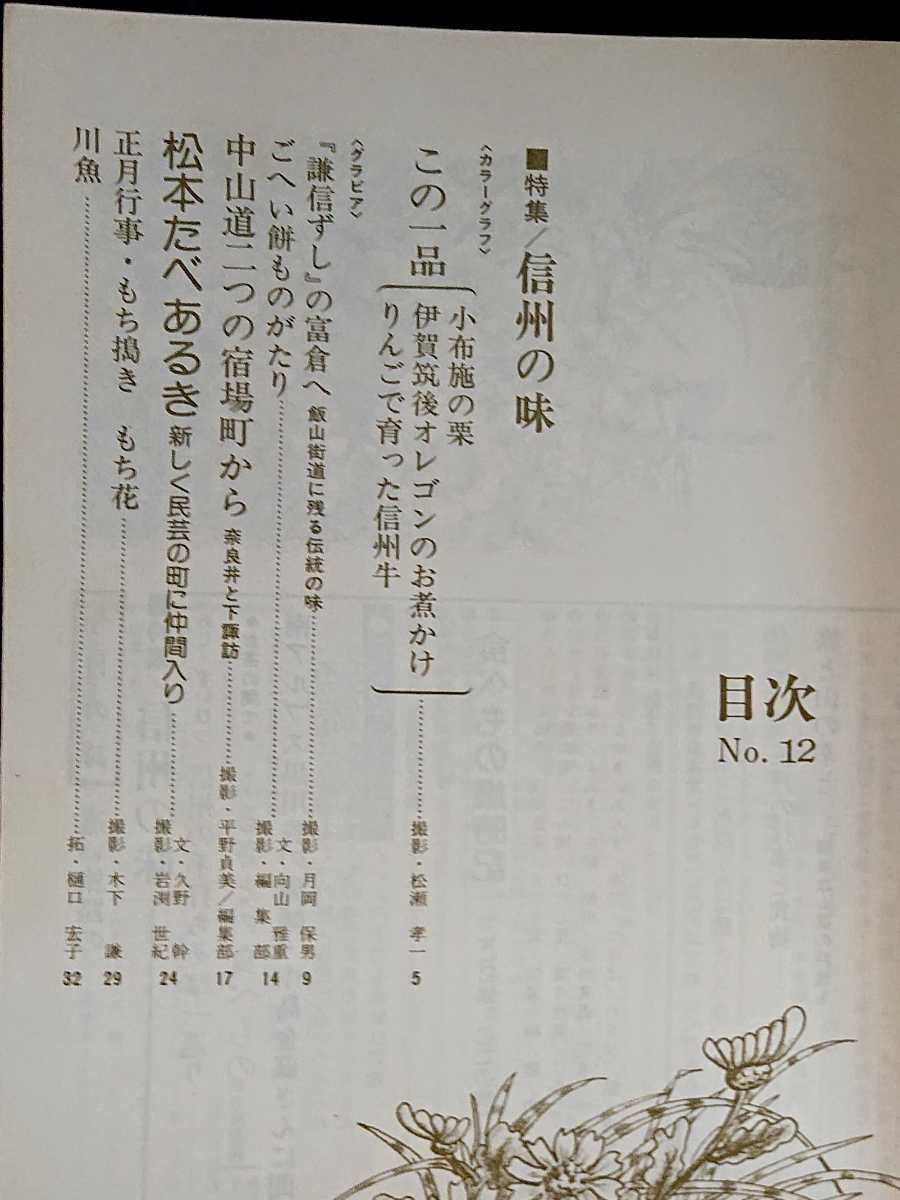 目次
No. 12
■特集／信州の味
〈カラーグラフ〉
この一品
小布施の栗
伊賀筑後オレゴンのお煮かけ
りんごで育った信州牛
撮影・松瀬 孝一 5
〈グラビア〉
『謙信ずし』の富倉へ 飯山街道に残る伝統の味 撮影・月岡 保男 9
ごへい餅ものがたり 文・向山 雅重 撮影・編集部 14
中山道二つの宿場町から 奈良井と下諏訪 撮影・平野貞美／編集部 17
松本たべあるき 新しく民芸の町に仲間入り 文・久野 幹 撮影・岩渕 世紀 24
正月行事・もち搗き もち花 撮影・木下 謙 29
川魚 拓・樋口 宏子 32